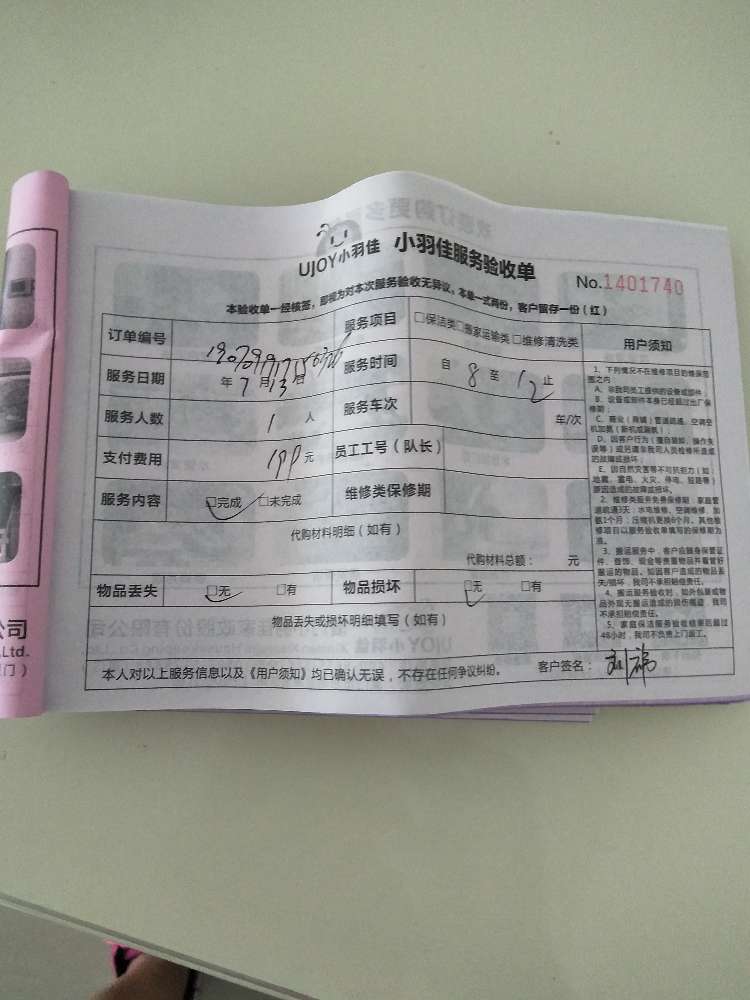 UJOY小羽佳 小羽佳服务验收单
No.1401740
本验收单一经核签，即视为对本次服务验收无异议，本单一式两份，客户留存一份（红）
订单编号 服务项目 □保洁类□搬家运输类 □维修清洗类 用户须知
服务日期 年 7 月 13 日 服务时间 自 8 至 12 止
服务人数 1 人 服务车次 车/次
支付费用 199 元 员工工号（队长）
服务内容 □完成 □未完成 维修类保修期
代购材料明细（如有）
代购材料总额： 元
物品丢失 □无 □有 物品损坏 □无 □有
物品丢失或损坏明细填写（如有）
本人对以上服务信息以及《用户须知》均已确认无误，不存在任何争议纠纷。 客户签名：
1、下列情况不在维修项目的维保范
围之内：
A、非我司员工提供的设备或部件；
B、设备或部件本身已经超过出厂保
修期；
C、商业（商铺）管道疏通，空调空
机加氨（新机或漏氨）；
D、因客户行为（擅自装卸、操作失
误等）或另请非我司人员检修所造成
的故障或损坏；
E、因自然灾害等不可抗拒力（如：
地震、雷电、火灾、停电、短路等）
原因造成的故障或损坏。
2、维修类服务免费保修期：家庭管
道疏通3天；水电维修、空调维修、加
氨1个月；压缩机更换6个月。其他维
修项目以服务验收单填写的保修期为
准。
3、搬运服务中，客户应随身保管证
件、首饰、现金等贵重物品并看管好
搬运的物品。如因客户造成的物品丢
失/损坏，我司不承担赔偿责任。
4、搬运服务验收时，如外包装或物
品外观无搬运造成的损伤痕迹，我司
不承担赔偿责任。
5、家庭保洁服务验收结束后超过
48小时，我司不负责上门返工。
公司
Ltd.
门）